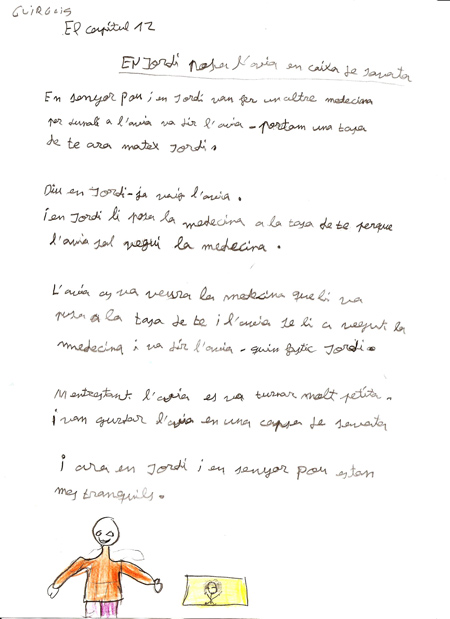 GUIRGUIS
El capítul 12
EN Jordi posa l'avia en caixa de savata
En senyor pou i en Jordi van fer un altre medecina
per dunali a l'avia va dir l'avia - portam una tasa
de te ara matex Jordi.
Diu en Jordi - ja vaig l'avia.
i en Jordi li posa la medecina a la tasa de te perque
l'avia sal vegui la medecina.
L'avia es va veura la medecina que li va
pusa a la tasa de te i l'avia se li a vegut la
medecina i va dir l'avia - quin fastic Jordi.
Mentrestant l'avia es va turnar molt petita.
i van gurdar l'avia en una capsa de savata
i ara en Jordi i en senyor pou estan
mes tranquils.